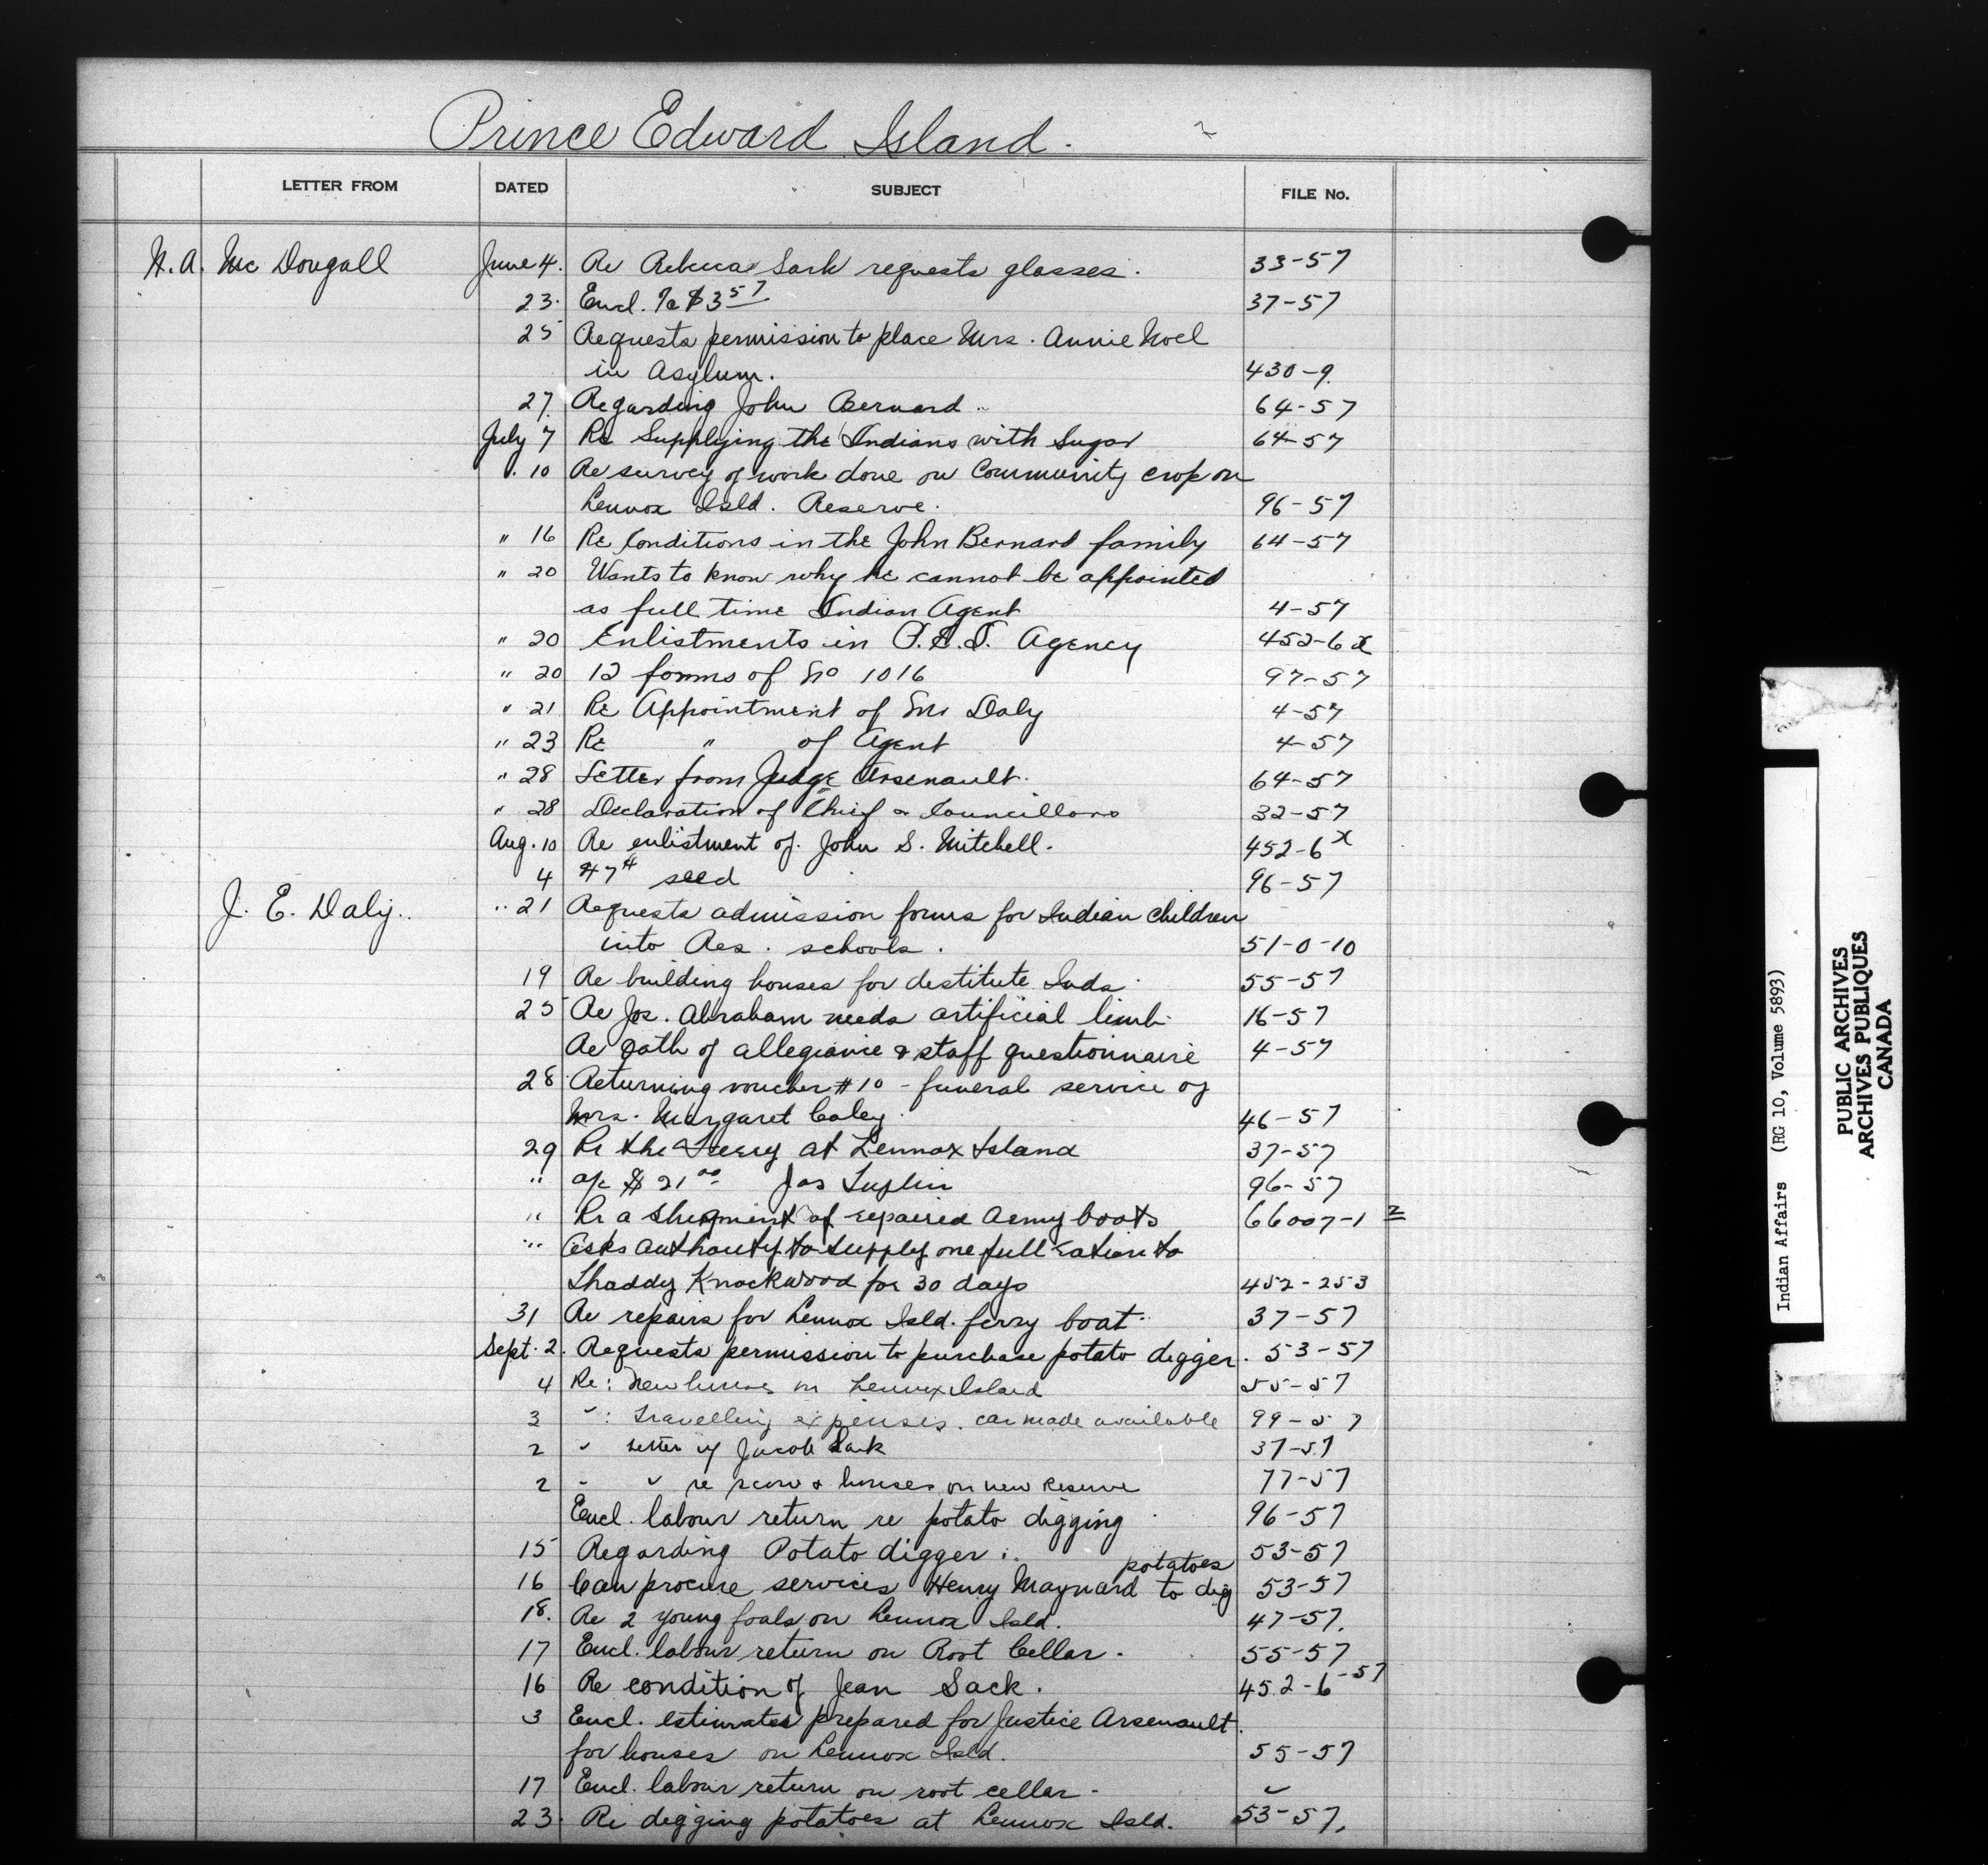 Prince Edward Island.
LETTER FROM DATED SUBJECT FILE No.
McDougall June 4. Re Rebecca Sark requests glasses. 33-57
23. Encl. $3 57 37-57
25 Requests permission to place Mrs. Annie Noel
in Asylum. 430-9.
27. Regarding John Bernard 64-57
July 7 Re Supplying the Indians with Sugar 64-57
10 Re survey of work done on Community crop on
Lennox Isld. Reserve. 96-57
" 16 Re Conditions in the John Bernard family 64-57
" 20 Wants to know why he cannot be appointed
as full time Indian Agent 4-57
" 20 Enlistments in P.E.I. Agency 452-6 x
" 20 12 forms of No 1016 97-57
" 21 Re Appointment of Mr Daly 4-57
" 23 Re " of Agent 4-57
" 28 Letter from Judge Arsenault. 64-57
" 28 Declaration of Chief & Councillors 32-57
Aug. 10 Re enlistment of John S. Mitchell. 452-6 x
4 seed 96-57
J. E. Daly.. " 21 Requests admission forms for Indian children
into Res. schools. 51-0-10
19 Re building houses for destitute Inds. 55-57
25 Re Jos. Abraham needs artificial limb 16-57
Re Oath of allegiance & staff questionnaire 4-57
28 Returning voucher #10 - funeral service of
Mrs. Margaret Coley. 46-57
29 Re the Ferry at Lennox Island 37-57
" a/c $21 00 Jas Tuplin 96-57
" Re a shipment of repaired Army boots 66007-1 2
" Asks authority to supply one full ration to
Thaddy Knockwood for 30 days 452-253
31 Re repairs for Lennox Isld. ferry boat 37-57
Sept. 2. Requests permission to purchase potato digger. 53-57
4 Re: New houses on Lennox Island 55-57
3 ": Travelling expenses. car made available 99-57
2 " Letter of Jacob Sark 37-57
2 " " re scow & houses on new Reserve 77-57
Encl. labour return re potato digging 96-57
15 Regarding Potato digger 53-57
potatoes
16 Can procure services Henry Maynard to dig 53-57
18. Re 2 young foals on Lennox Isld. 47-57.
17 Encl. labour return on Root Cellar. 55-57
16 Re condition of Jean Sack. 452-6-57
3 Encl. estimates prepared for Justice Arsenault.
for houses on Lennox Isld. 55-57
17 Encl. labour return on root cellar. "
23. Re digging potatoes at Lennox Isld. 53-57.
Indian Affairs (RG 10, Volume 5893)
PUBLIC ARCHIVES
ARCHIVES PUBLIQUES
CANADA